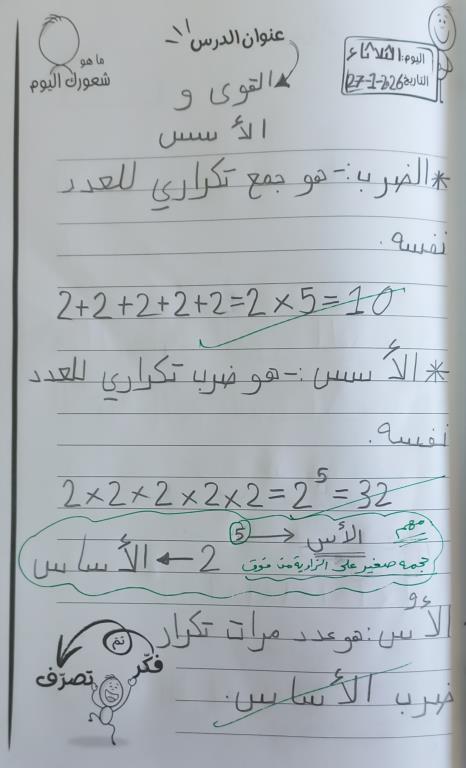 ما هو
شعورك اليوم
عنوان الدرس
اليوم: الثلاثاء
التاريخ: 27-1-2026
القوى و
الأسس
* الضرب:- هو جمع تكراري للعدد
نفسه.
2+2+2+2+2=2×5=10
* الأسس:- هو ضرب تكراري للعدد
نفسه.
2×2×2×2×2=2⁵=32
مهم
5 → الأس
حجمه صغير على الزاوية من فوق
2 → الأساس
الأُس: هو عدد مرات تكرار
ضرب الأساس.
فكّر
ثم
تصرّف